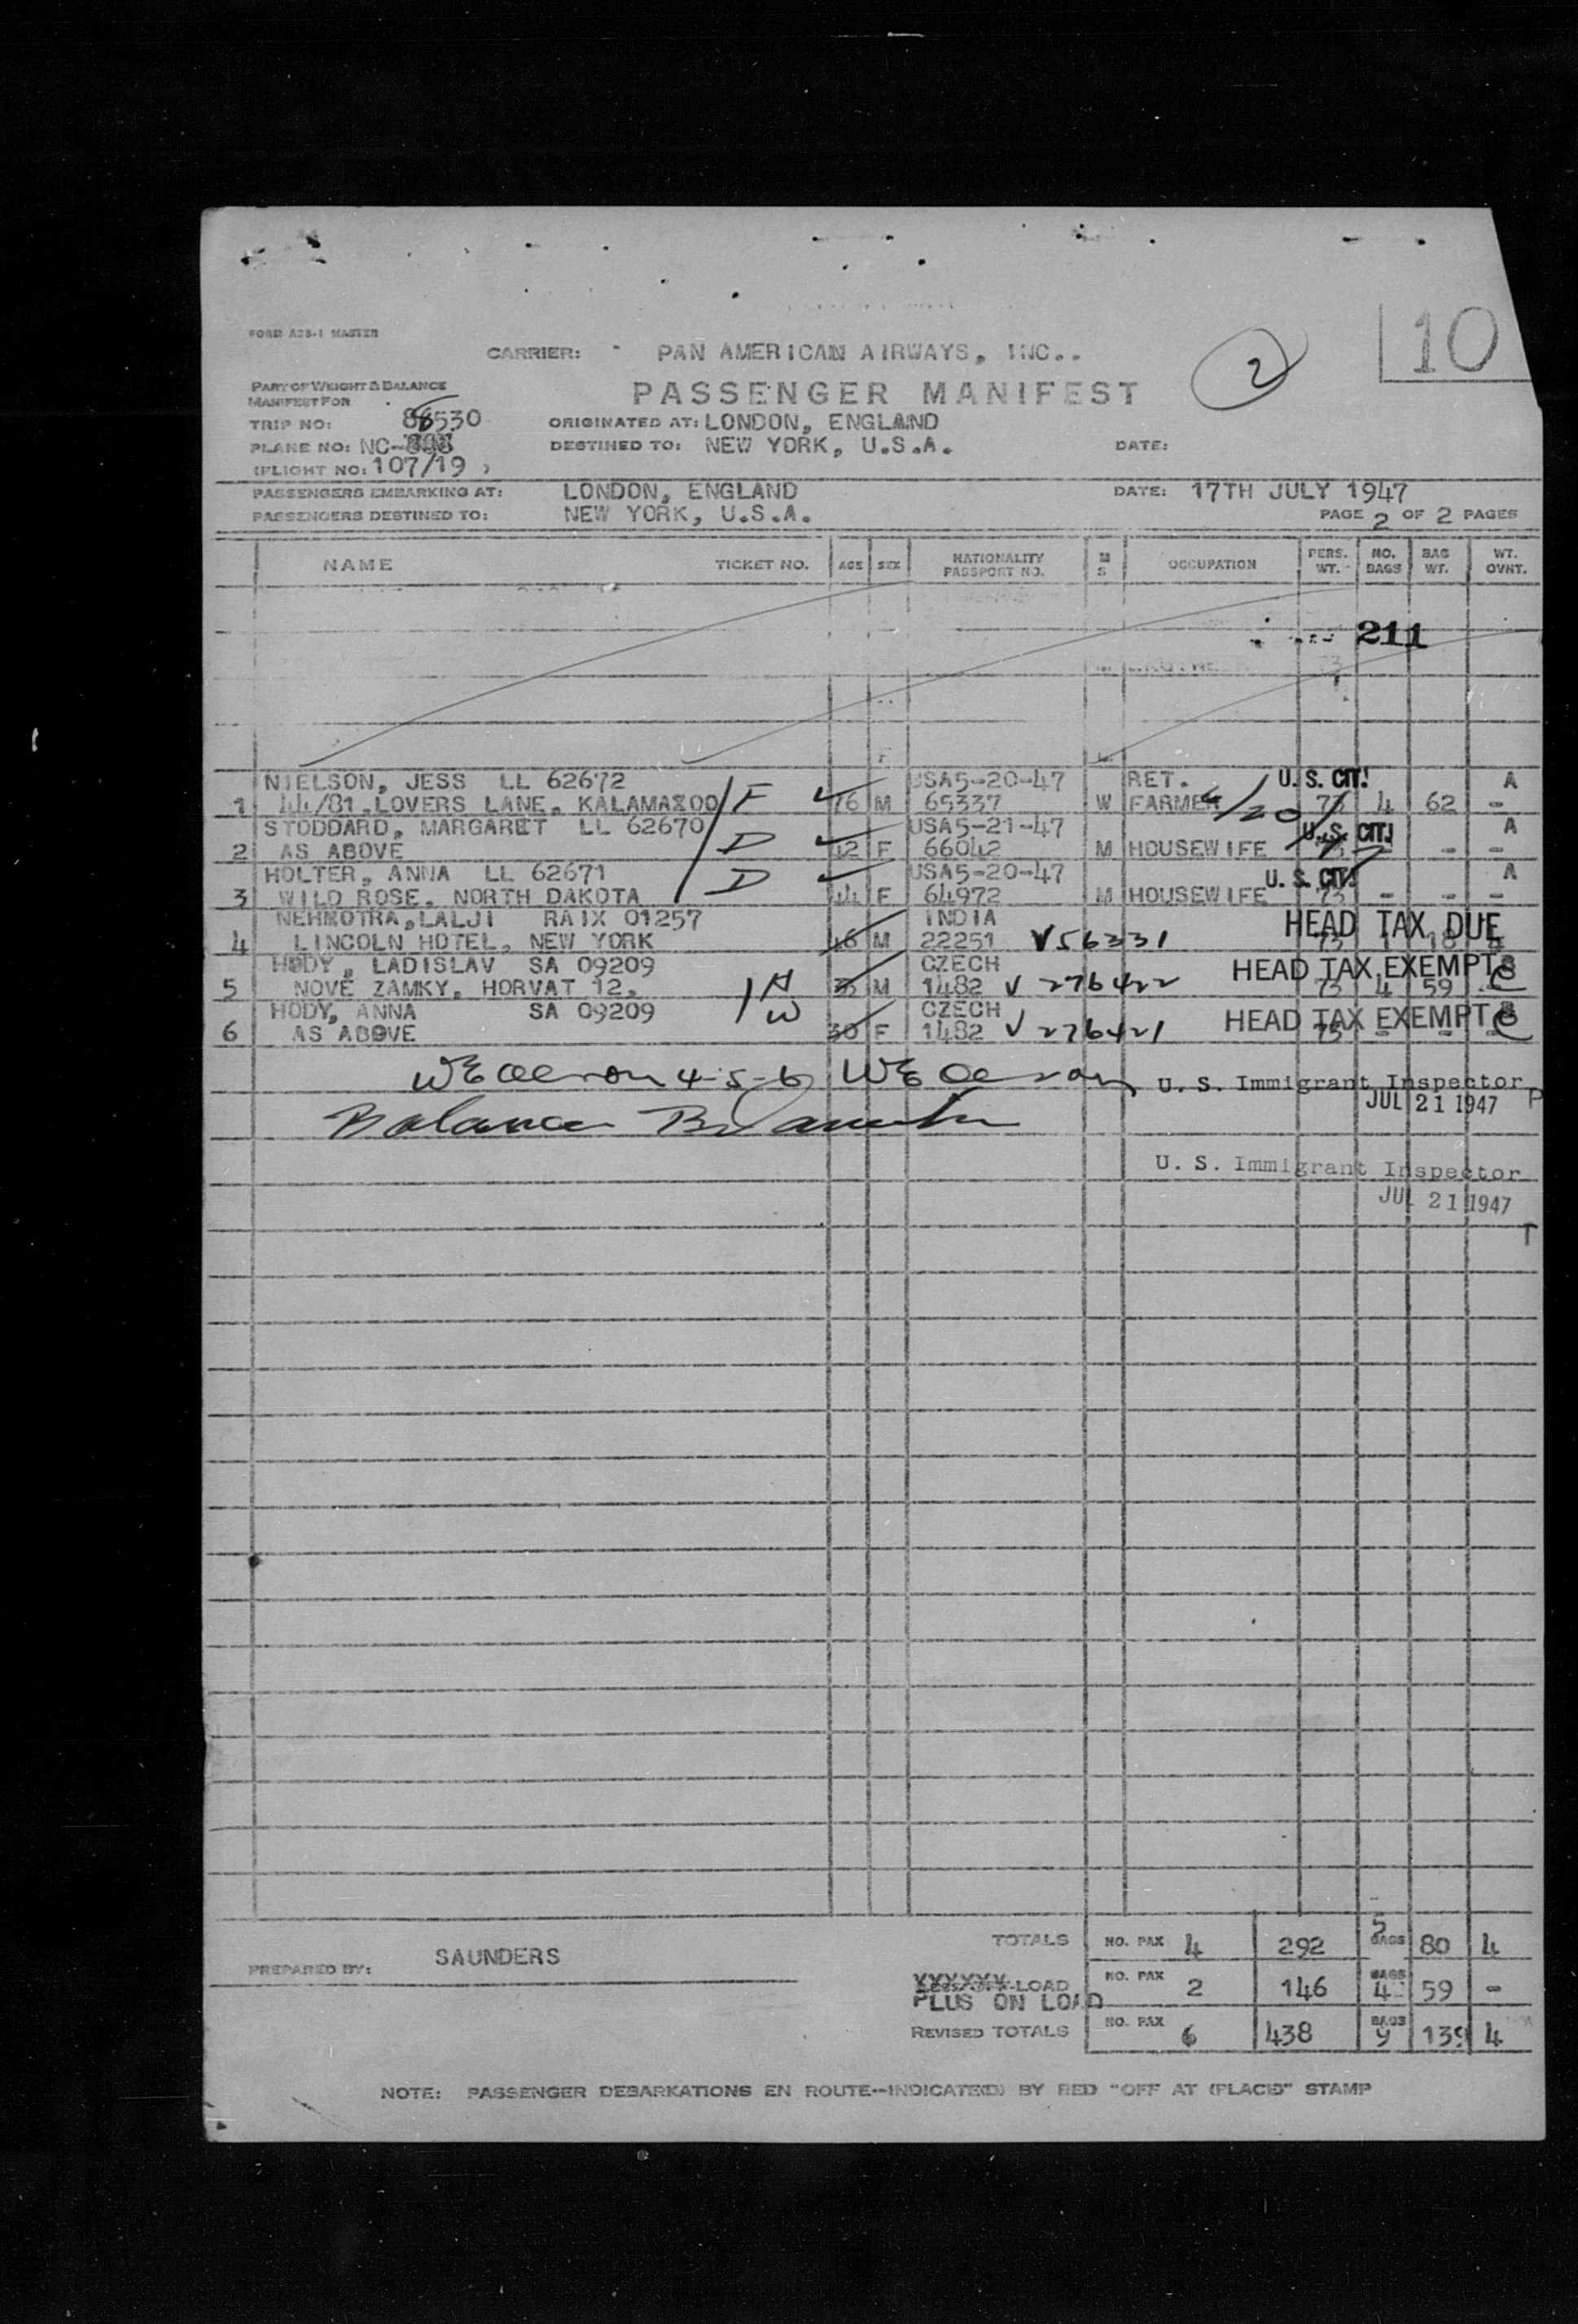 FORM A28-1 MASTER
CARRIER: PAN AMERICAN AIRWAYS, INC..
2
10
PART OF WEIGHT & BALANCE
MANIFEST FOR
PASSENGER MANIFEST
TRIP NO: 530
ORIGINATED AT: LONDON, ENGLAND
PLANE NO: NC-
DESTINED TO: NEW YORK, U.S.A.
DATE:
(FLIGHT NO: 107/19 )
PASSENGERS EMBARKING AT: LONDON, ENGLAND
DATE: 17TH JULY 1947
PASSENGERS DESTINED TO: NEW YORK, U.S.A.
PAGE 2 OF 2 PAGES
NAME TICKET NO. AGE SEX NATIONALITY PASSPORT NO. M S OCCUPATION PERS. WT. NO. BAGS BAG WT. WT. OVNT.
211
NIELSON, JESS LL 62672 USA5-20-47 RET. U.S. CIT. A
1 44/81 LOVERS LANE, KALAMAZOO F 76 M 65337 W FARMER 73 4 62 -
STODDARD, MARGARET LL 62670 USA5-21-47 U.S. CIT. A
2 AS ABOVE D 42 F 66042 M HOUSEWIFE 73 - - -
HOLTER, ANNA LL 62671 USA5-20-47 U.S. CIT. A
3 WILD ROSE, NORTH DAKOTA D 44 F 64972 M HOUSEWIFE 73 - - -
NEHMOTRA,LALJI RAIX 01257 INDIA HEAD TAX DUE
4 LINCOLN HOTEL, NEW YORK 46 M 22251 V56331 73 1 18 4
HODY, LADISLAV SA 09209 CZECH HEAD TAX EXEMPT
5 NOVE ZAMKY, HORVAT 12, H M 1482 V 276422 73 4 59 -
HODY, ANNA SA 09209 W CZECH HEAD TAX EXEMPT
6 AS ABOVE 30 F 1482 V 276421 73 - - -
4-5-6
U. S. Immigrant Inspector
JUL 21 1947
Balance
U. S. Immigrant Inspector
JUL 21 1947
TOTALS NO. PAX 4 292 5 BAGS 80 4
PREPARED BY: SAUNDERS
XXXXXX-LOAD NO. PAX 2 146 BAGS 4 59 -
PLUS ON LOAD
REVISED TOTALS NO. PAX 6 438 BAGS 9 139 4
NOTE: PASSENGER DEBARKATIONS EN ROUTE--INDICATE(D) BY RED "OFF AT (PLACE)" STAMP